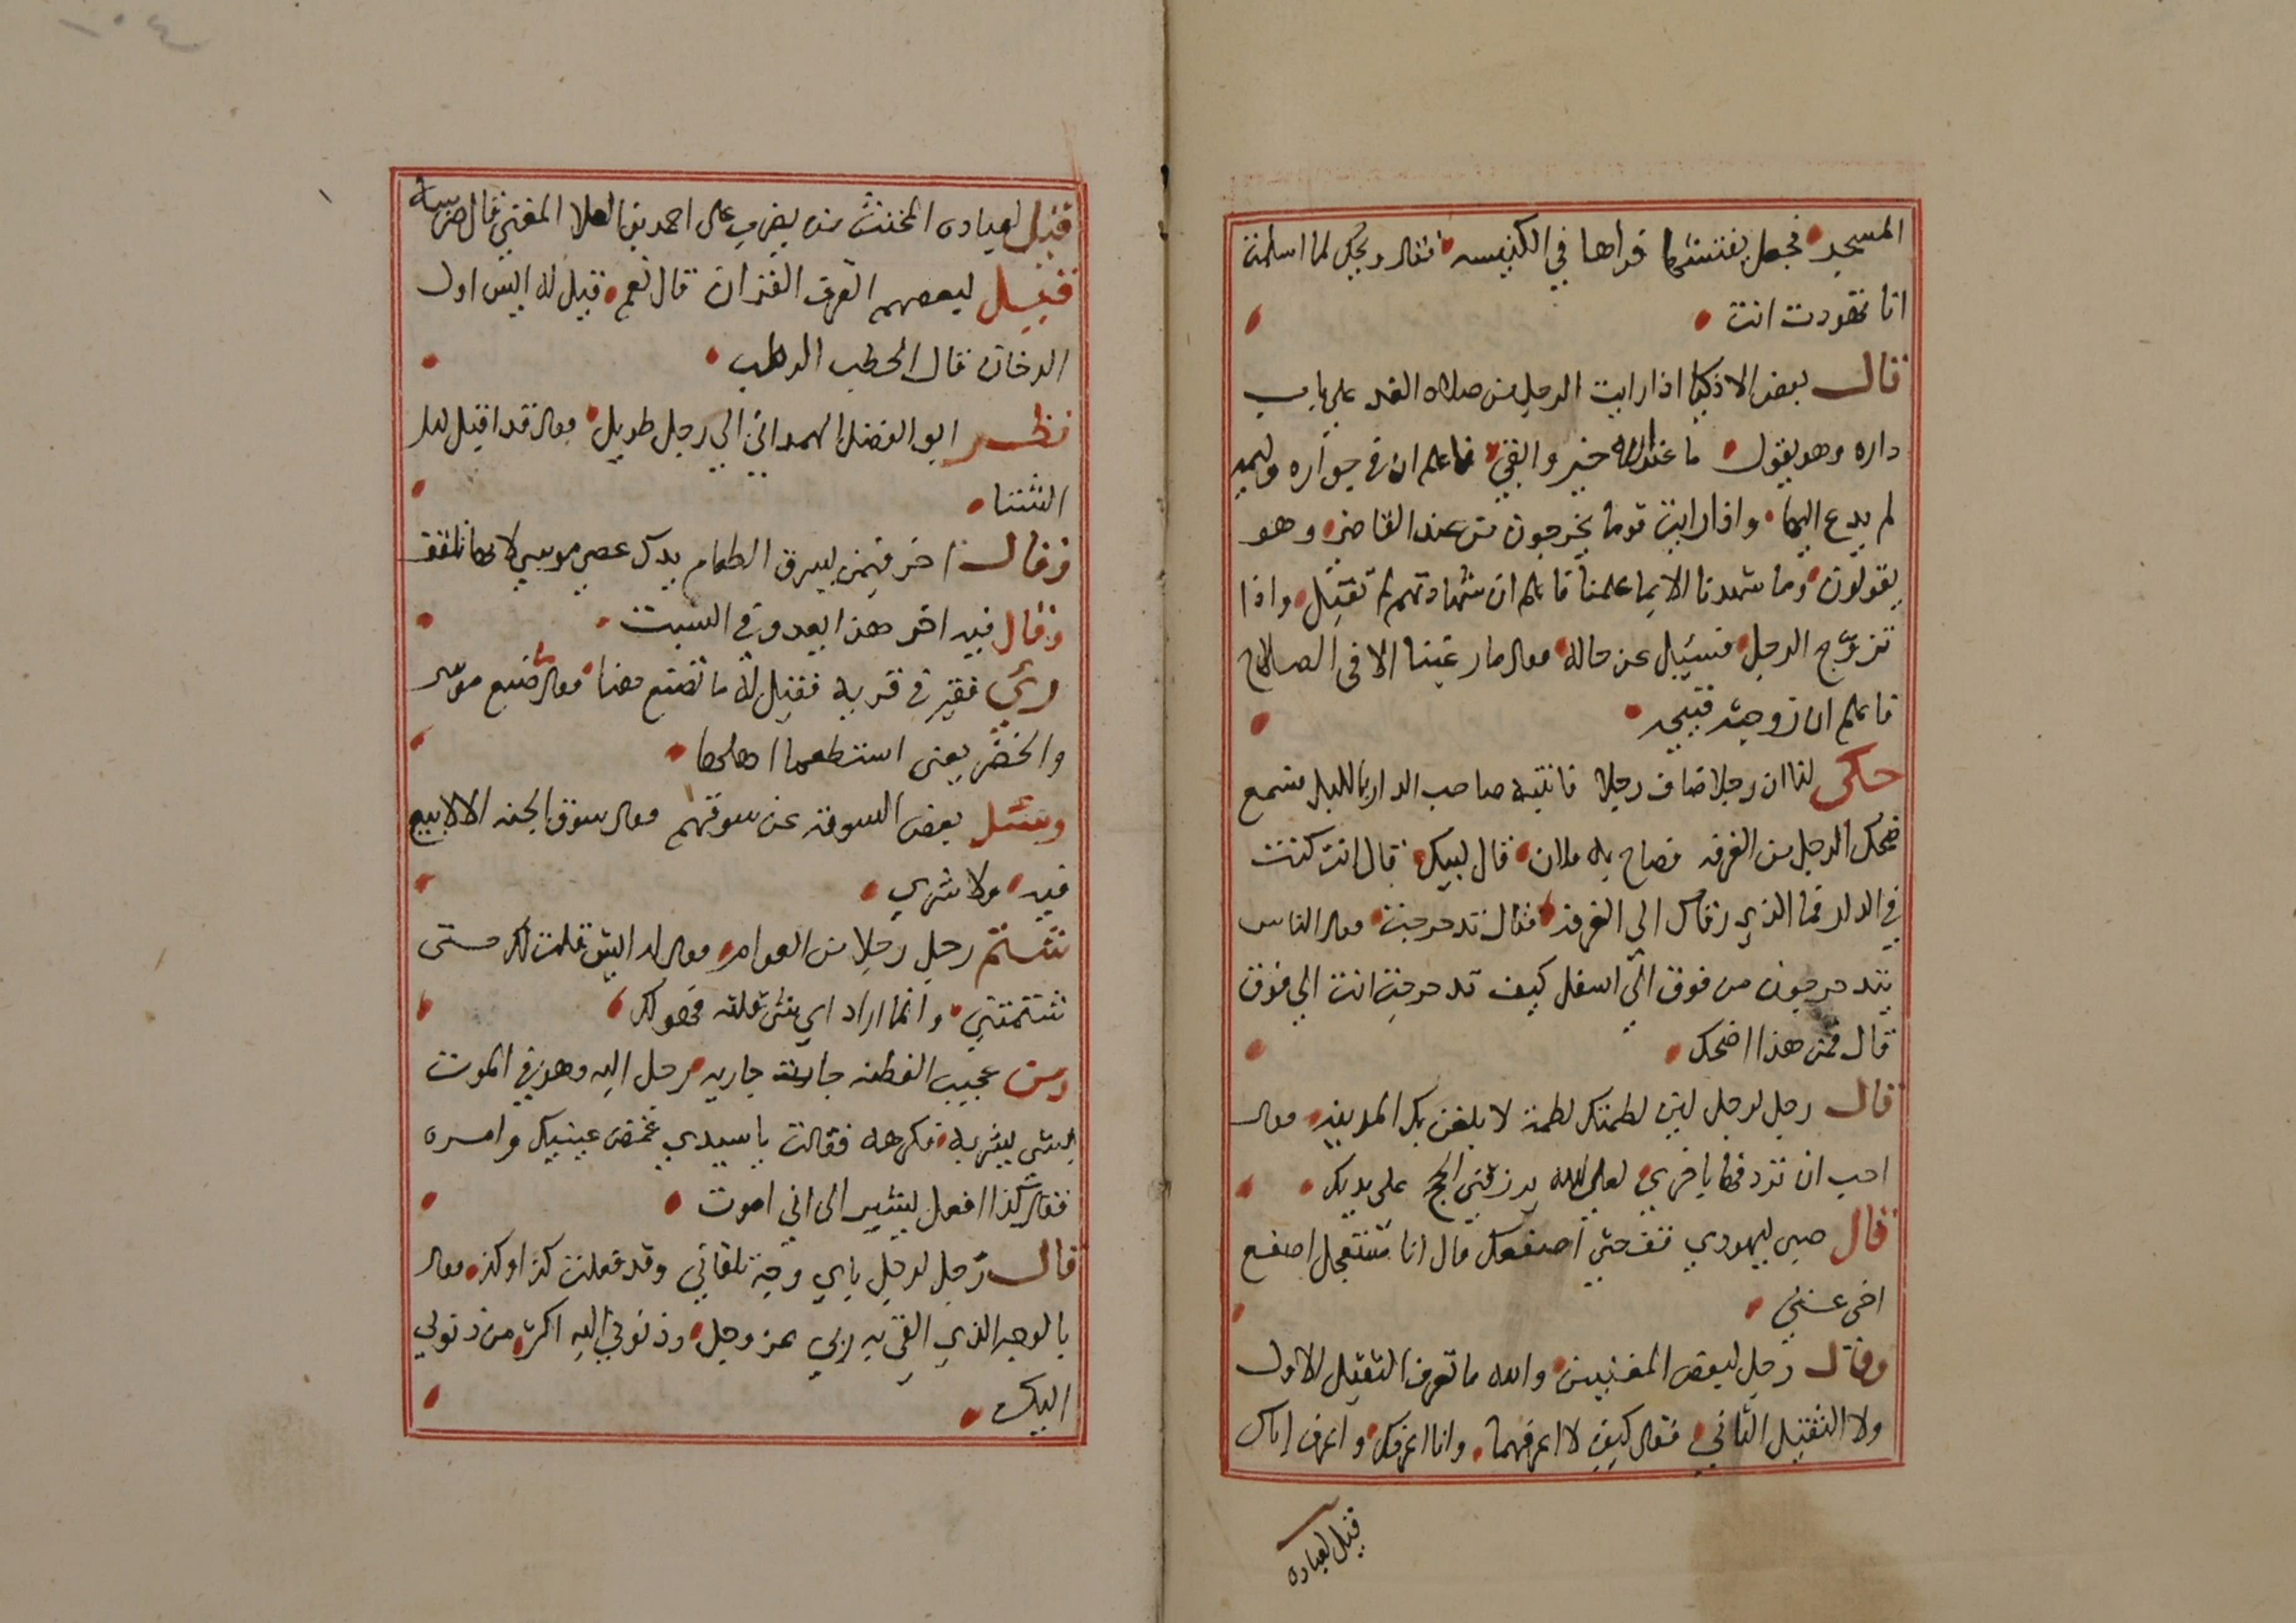 المسجد فجعل يفتشها فراها في الكنيسه فقال ويحك لما اسلمت
انا تهودت انت
قال بعض الاذكيا اذا رايت الرجل من صلاه الغد على باب
داره وهو يقول ما عند الله خير وابقي فاعلم ان في جواره وليمه
لم يدع اليها واذا رايت قوما يخرجون من عند القاضي وهو
يقولون وما شهدنا الا بما علمنا فاعلم ان شهادتهم لم تقبل واذا
تزوج الرجل فسئل عن حاله فقال ما رغبنا الا في الصلاح
فاعلم ان زوجته قبيحه
حكى لنا ان رجلا ضاف رجلا فانتبه صاحب الدار بالليل فسمع
ضحك الرجل من الغرفه فصاح به فلان قال لبيك قال انت كنت
في الدار فما الذي رقاك الي الغرفه فقال تدحرجت فقال الناس
يتدحرجون من فوق الي اسفل كيف تدحرجت انت الي فوق
قال فمن هذا اضحك
قال رجل لرجل لين لطمتك لطمة لا بلغن بك المدينه فقال
احب ان تردفها باخري لعل الله يرزقني الحج على يديك
قال صبي ليهودي قف حتي اصفعك قال انا مستعجل اصفع
اخي عني
وقال رجل لبعض المغنيين والله ما تعرف الثقيل الاول
ولا الثقيل الثاني فقال كيف لا اعرفهما وانا اعرفك واعرف اباك
قيل لعباده
قيل لعباده المخنث من يضرب على احمد بن العلا المغني قال ضرسه
فقيل لبعضهم اتعرف القران قال نعم قيل له ايش اول
الدخان قال الحطب الرطب
نظر ابو الفضل الهمداني الي رجل طويل فقال قد اقبل ليل
الشتا
وقال اخر فيمن يسرق الطعام يدك عصي موسي لانها تلقف
وقال فيه اخر هذا يعدو في السبت
رئي فقير في قريه فقيل له ما تصنع هنا فقال ما صنع موسى
والخضر يعني استطعما اهلها
وسئل بعض السوقه عن سوقهم فقال سوق الجنه لا لابيع
فيه ولا شري
شتم رجل رجلا من العوام فقال له ايش قلت لك حتى
شتمتني وانما اراد اي شي قلته فهو لك
ومن عجيب الفطنه جات جاريه رجل اليه وهو في الموت
بشي يشربه فكرهه فقالت يا سيدي غمض عينيك واشربه
فقال كذا افعل يشير الى اني اموت
قال رجل لرجل باي وجه تلقاني وقد فعلت كذا وكذا فقال
بالوجه الذي القي به ربي عز وجل وذنوبي اليه اكثر من ذنوبي
اليك
١٠٤